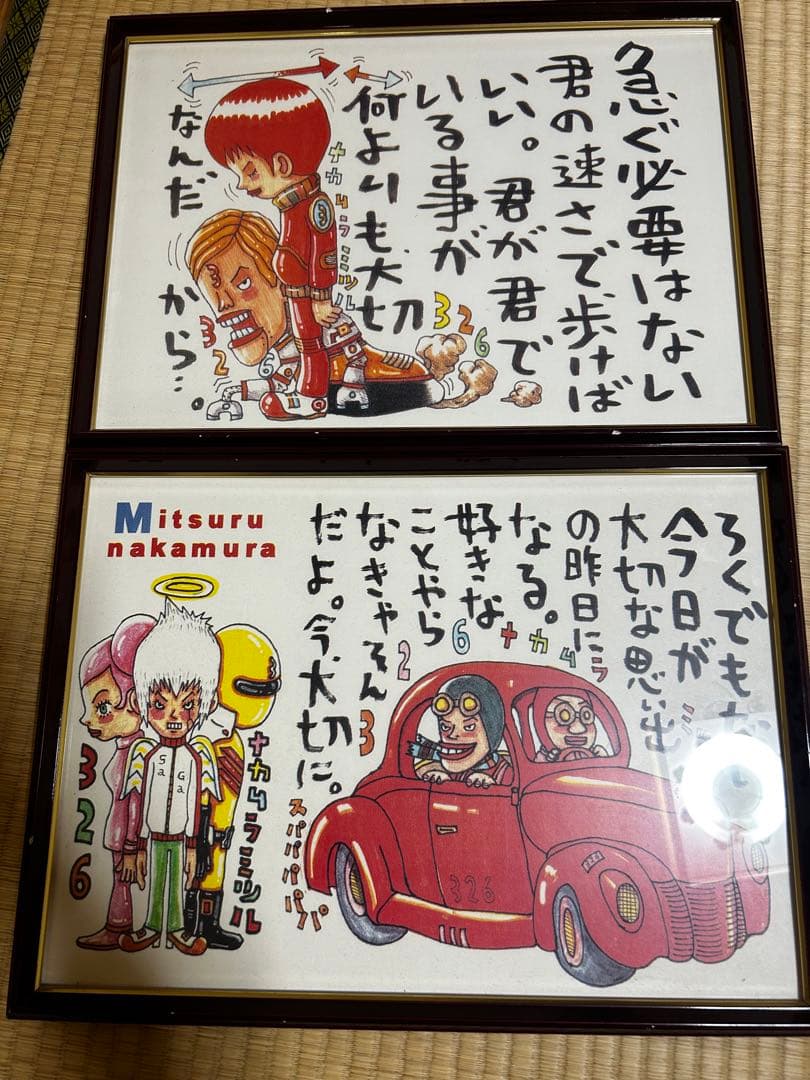 急ぐ必要はない
君の速さで歩けば
いい。君が君で
いる事が
何よりも大切
なんだ
から…。
ナカムラミツル
326
326
3
Mitsuru
nakamura
ろくでもな
今日が
大切な思い出
の昨日に
なる。
好きな
ことやら
なきゃそん
だよ。今、大切に。
ナカムラミ
326
スパパパパパ
326
Ga Ga
326
ナカムラミツル